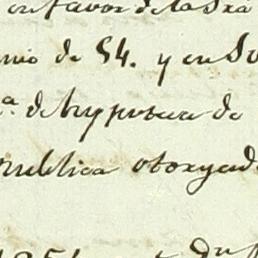 en favor de la Sra
nio de 54. y en Su
a. de hypoteca de
publica otorgad